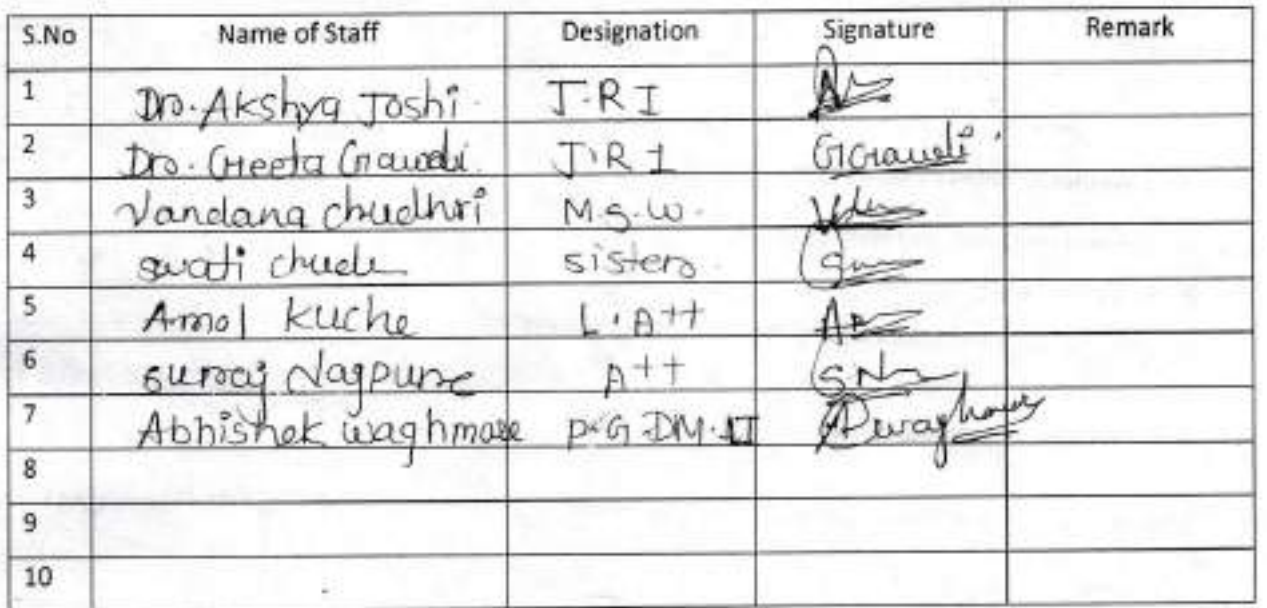 S.No Name of Staff Designation Signature Remark
1 Dr. Akshya Joshi. J.R I
2 Dr. Geeta Gawali. J.R I GGawali
3 Vandana chudhri M.S.W.
4 swati chude sister.
5 Amol Kuche L.Att
6 suraj Nagpure Att
7 Abhishek waghmare P.G.DM.LT
8
9
10